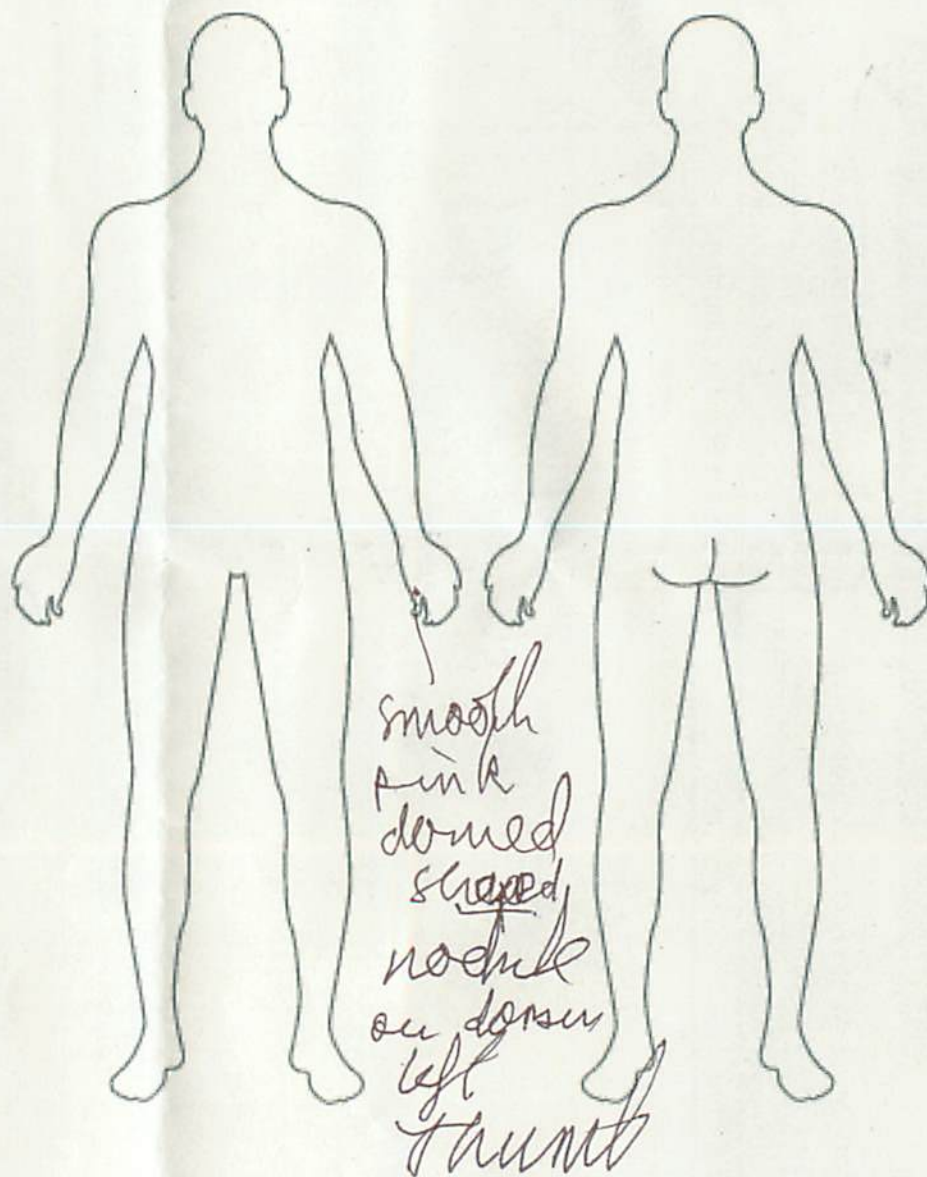 smooth
pink
domed
shaped
nodule
on dorsum
left
thumb